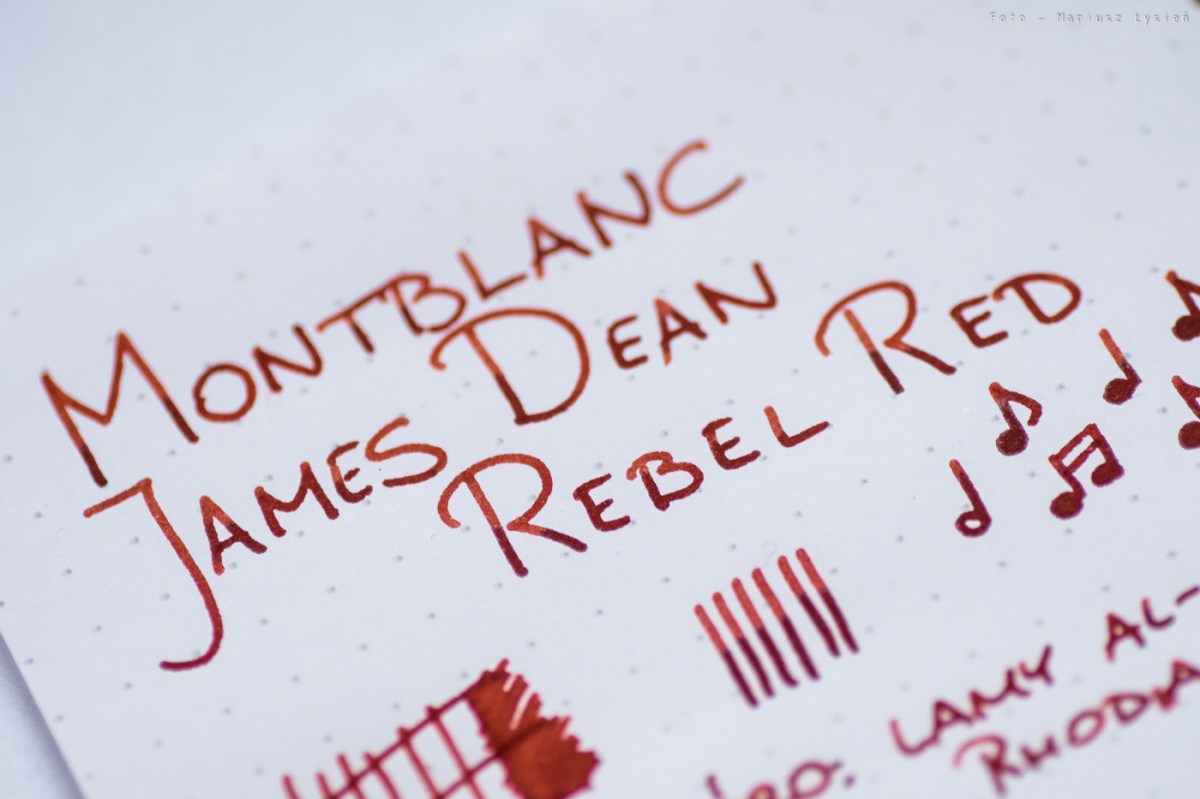 Foto - Mariusz Łysień
MONTBLANC
JAMES DEAN
REBEL RED
LAMY AL-
RHODIA